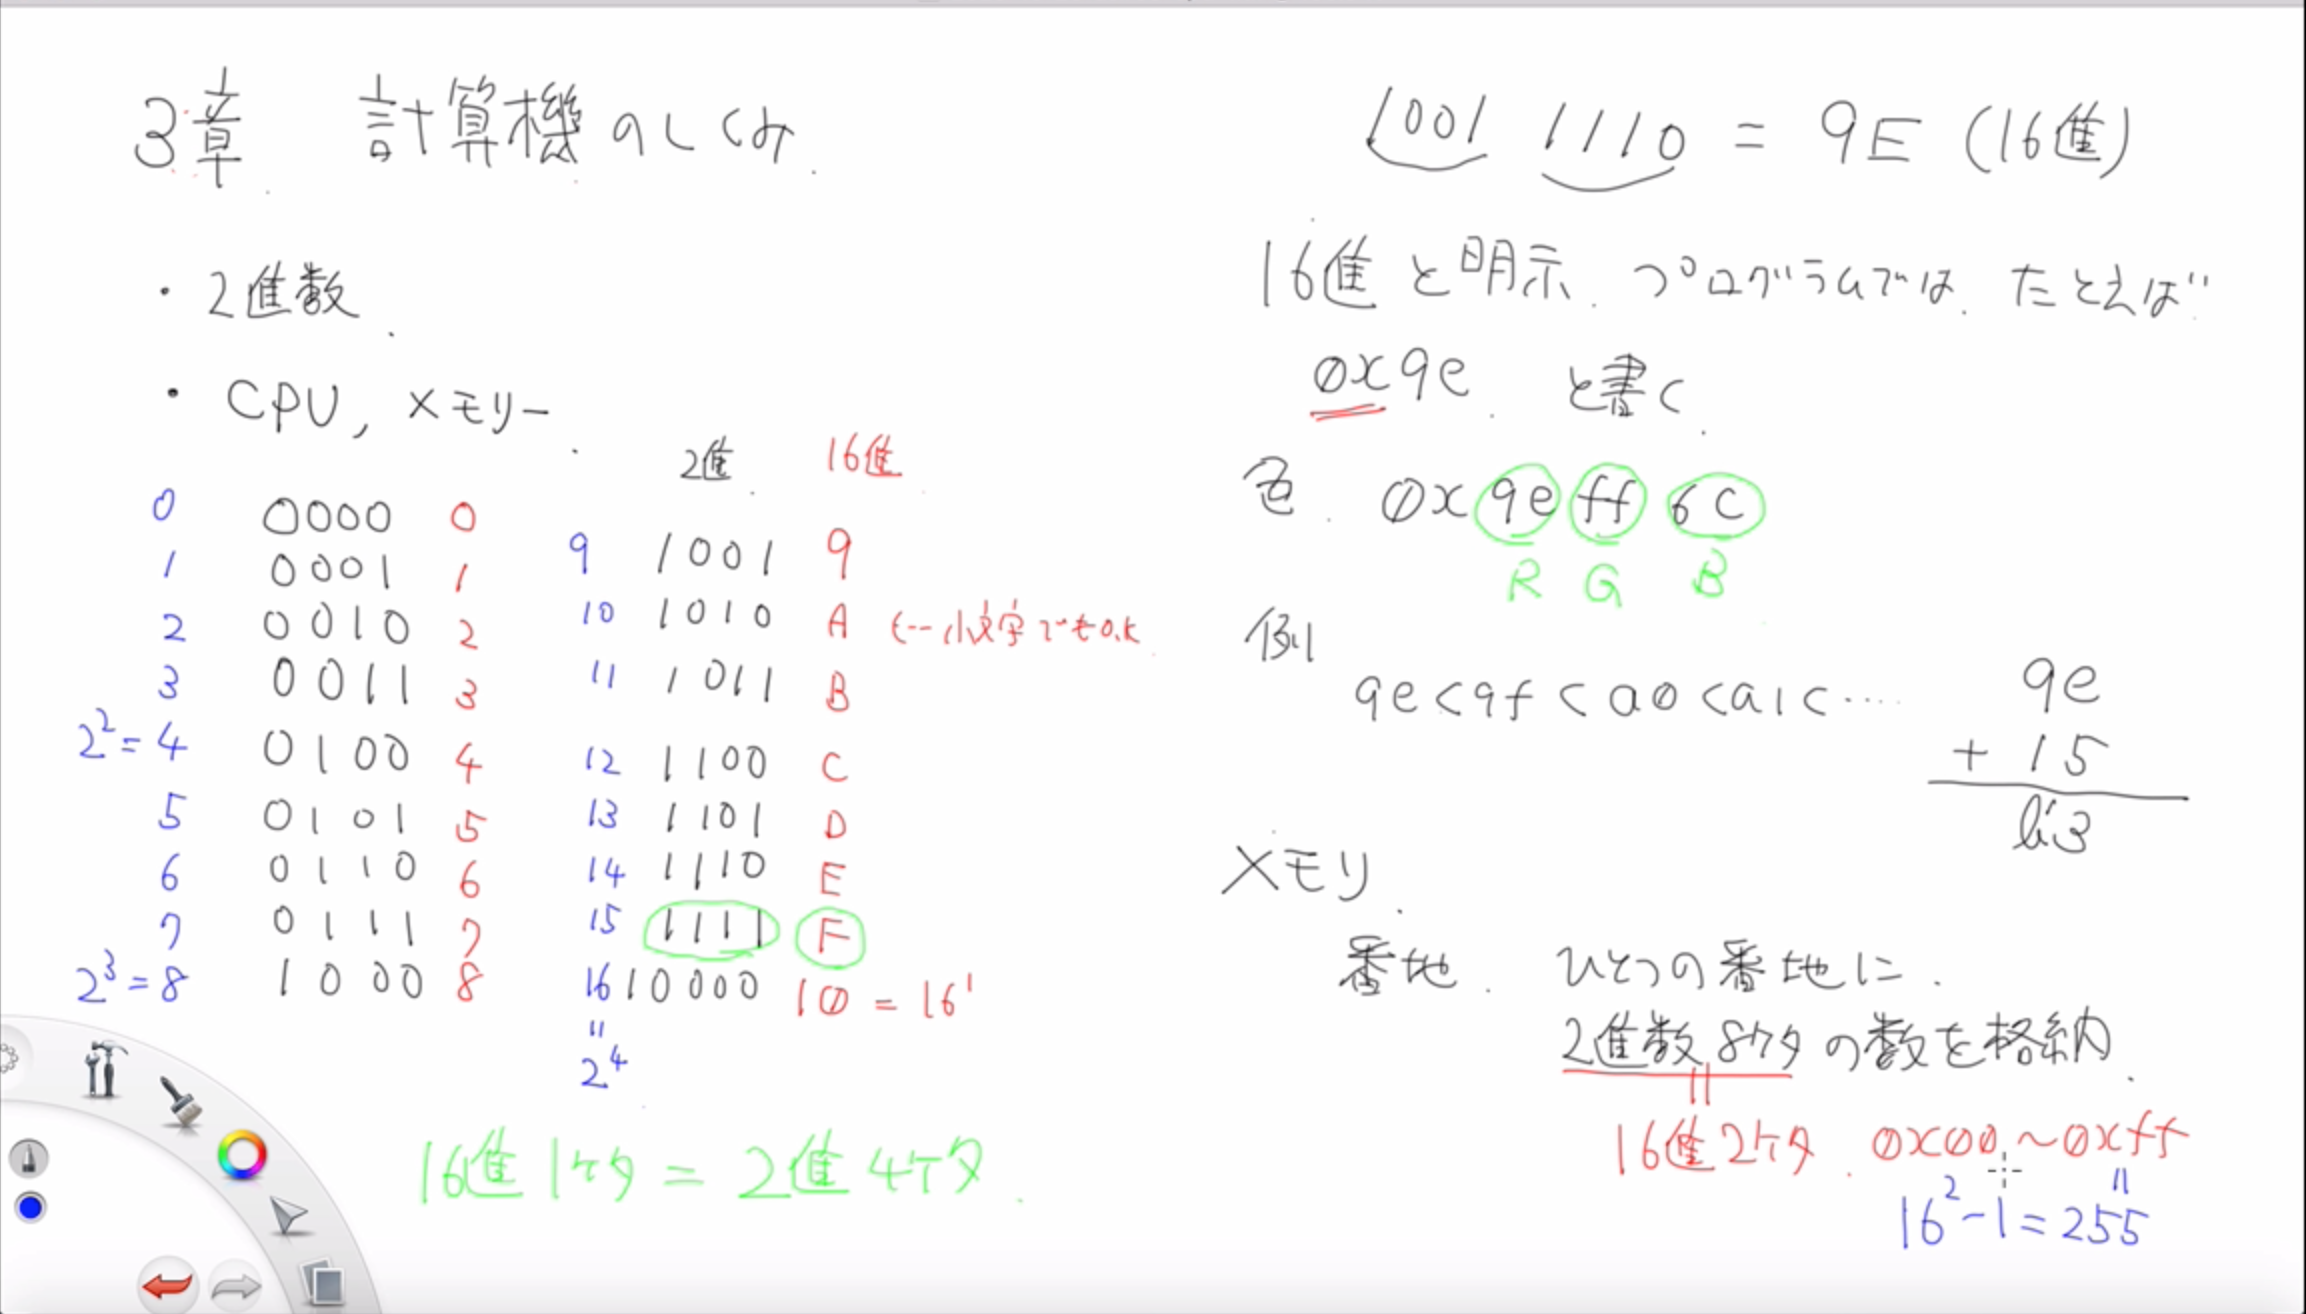 3章 計算機のしくみ
・2進数
・CPU, メモリー
0 0000 0
1 0001 1
2 0010 2
3 0011 3
2^2=4 0100 4
5 0101 5
6 0110 6
7 0111 7
2^3=8 1000 8
2進 16進
9 1001 9
10 1010 A ←-- 小文字でもOK
11 1011 B
12 1100 C
13 1101 D
14 1110 E
15 1111 F
16 10000 10 = 16^1
=
2^4
16進1ケタ = 2進4ケタ
1001 1110 = 9E (16進)
16進と明示. プログラムでは. たとえば
0x9e と書く
色 0x9eff6c
R G B
例
9e<9f<a0<a1<....
9e
+ 15
b3
メモリ
番地. ひとつの番地に.
2進数8ケタの数を格納.
=
16進2ケタ. 0x00~0xff
=
16^2-1=255